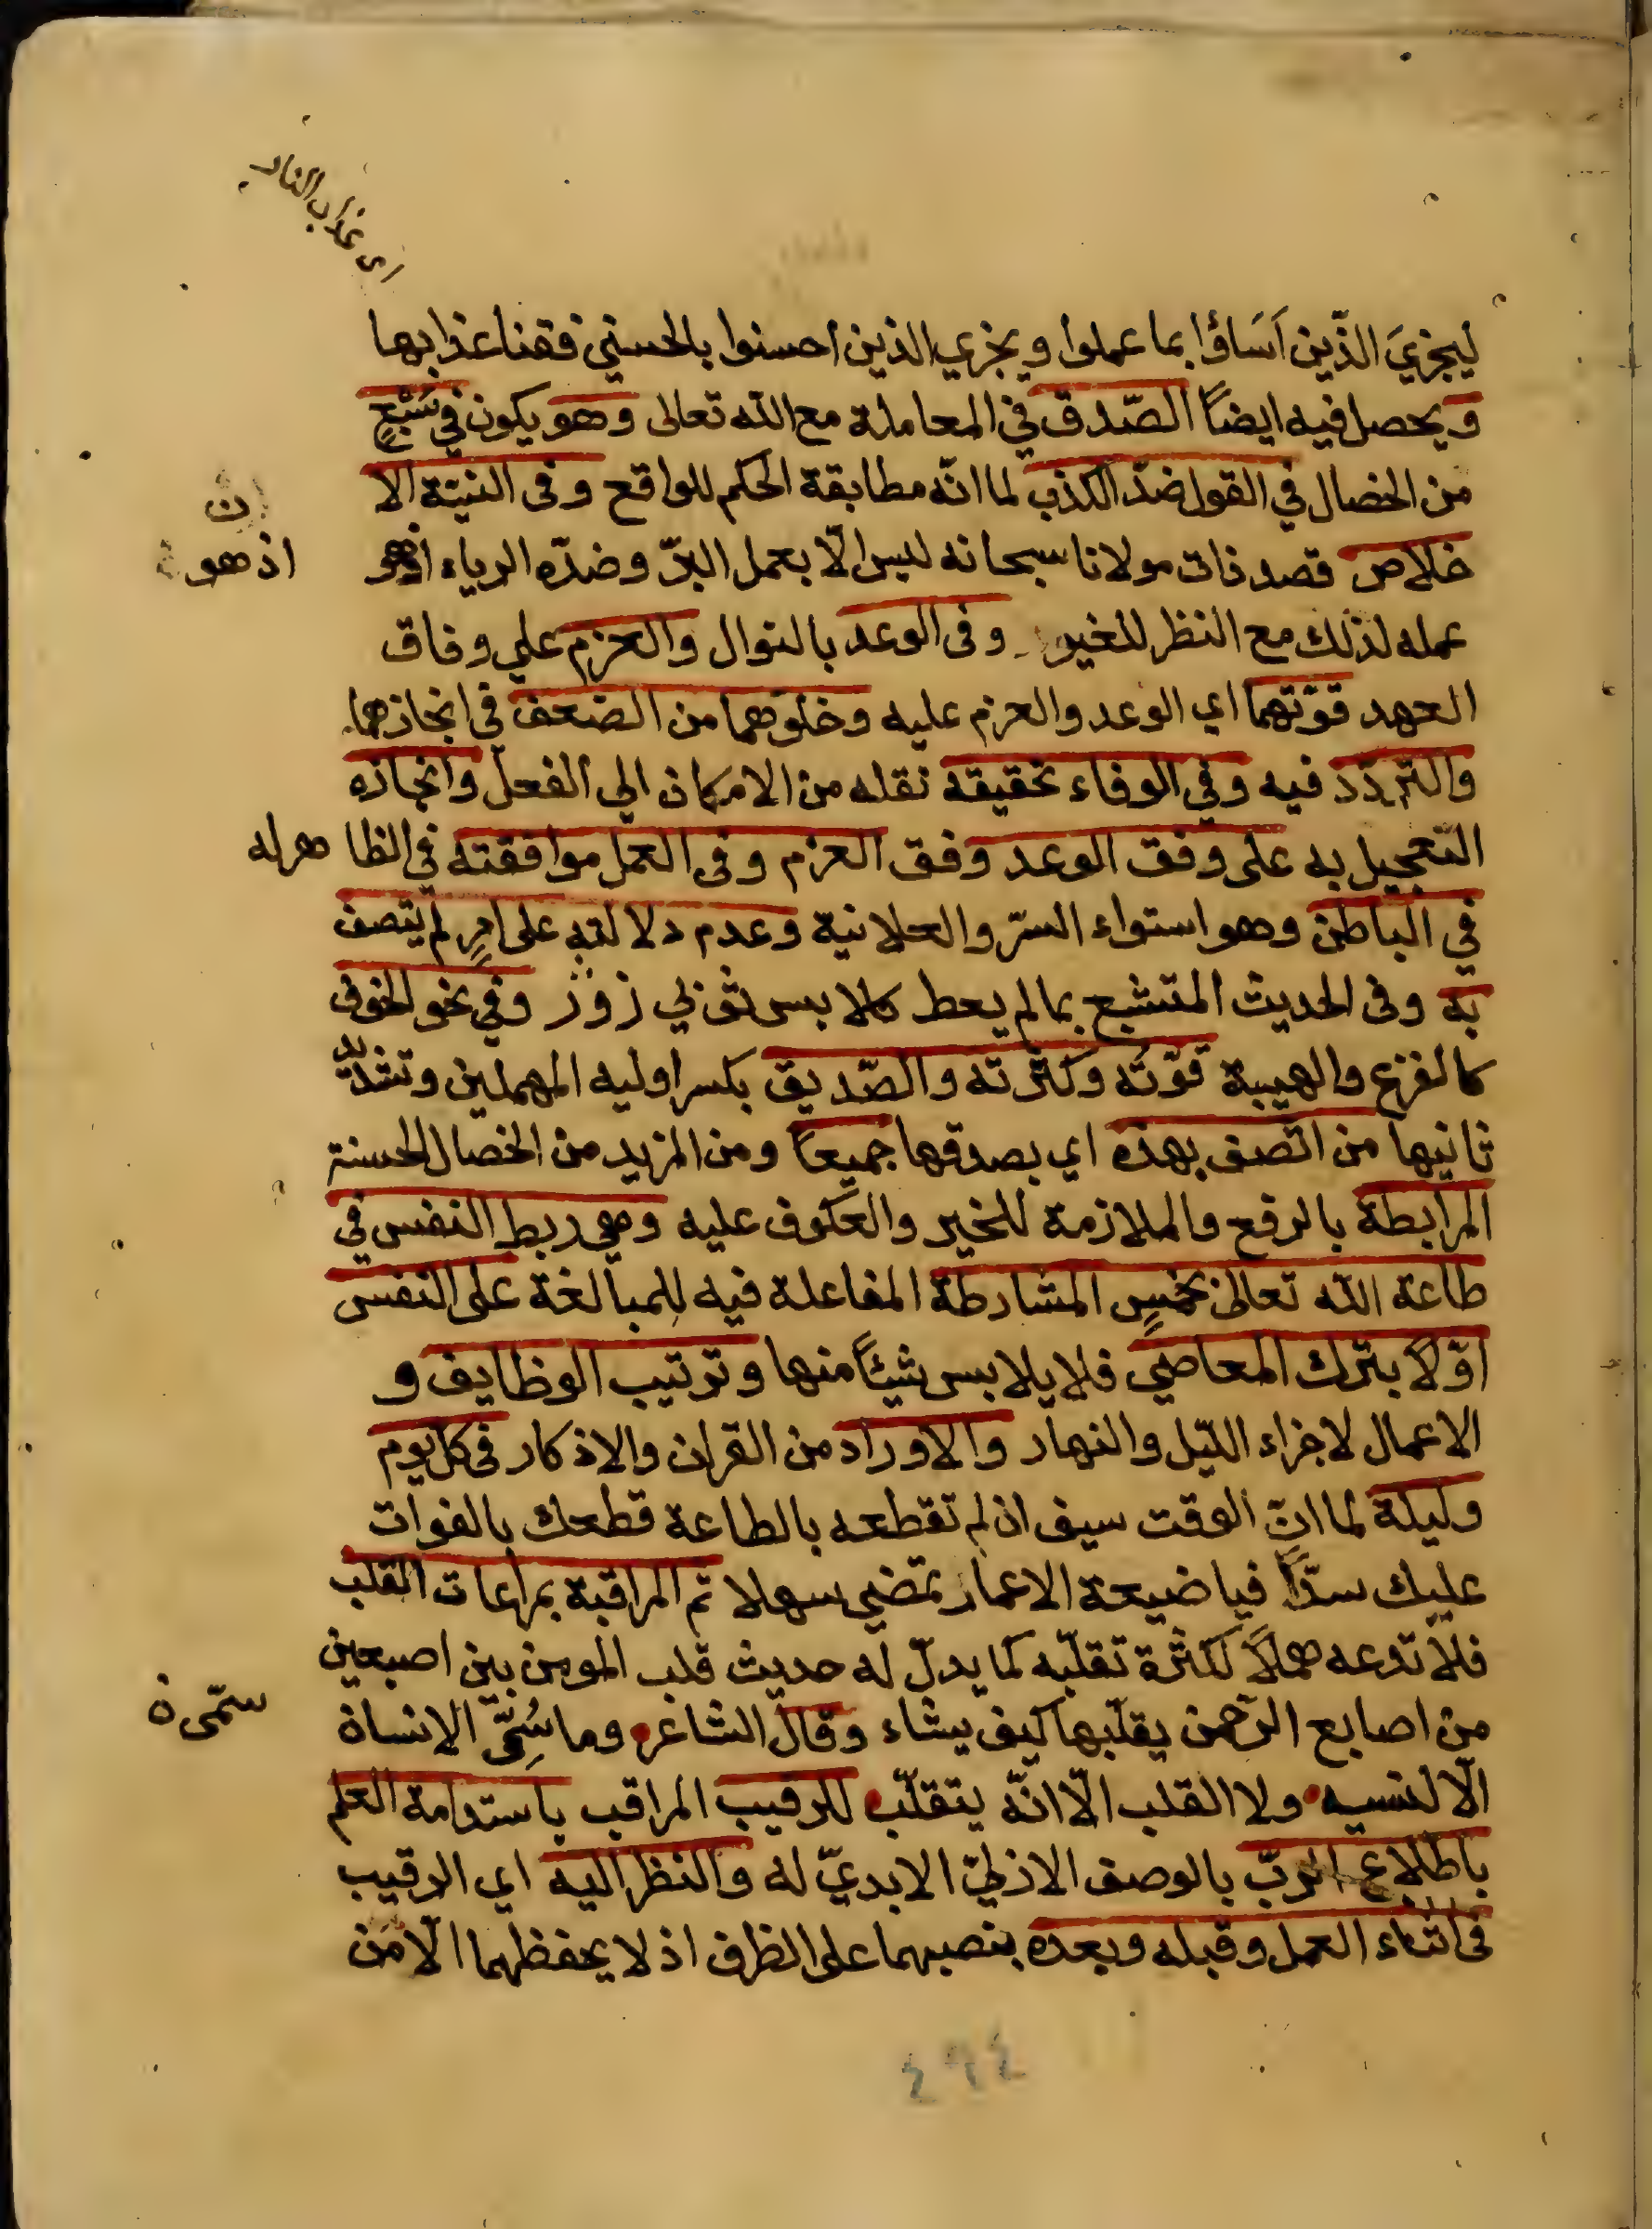 اي عذاب النار
ليجزيَ الذّين اَسَاؤا بما عملوا ويجزي الذين احسنوا بالحسني فقنا عذابها
ويحصل فيه ايضاً الصّدق في المعاملة مع الله تعالى وهو يكون في سَبْعٍ
من الخصال في القول ضدّ الكذب لما انّه مطابقة الحكم للواقع وفى النيّة الا
خلاص قصد ذات مولانا سبحانه ليس الّا بعمل البرّ وضدّه الرياء اذهو
ن
اذ هو
عمله لذلك مع النظر للغير وفى الوعد بالنوال والعزم علي وفاق
العهد قوّتهما اي الوعد والعزم عليه وخلوّهما من الضعف في انجازهما
والتردّد فيه وفي الوفاء تحقيقه نقله من الامكان الي الفعل وانجازه
التعجيل به على وفق الوعد وفق العزم وفى العمل موافقته في الظا هر له
في الباطن وهو استواء السرّ والعلانية وعدم دلالته على امرٍ لم يتصف
به وفى الحديث المتشبع بما لم يعط كلابس ثوبي زوُر وفي نحو الخوف
كالفزع والهيبة قوّتُه وكثرته والصّديق بكسر اوليه المهملين وتشديد
ثانيها من اتّصف بهذه اي بصدقها جميعاً ومن المزيد من الخصال الحسنة
المرابطة بالرفع والملازمة للخير والعكوف عليه وهي ربط النفس في
طاعة الله تعالى بخمسٍ المشارطة المفاعلة فيه للمبالغة على النفس
اوّلاً بترك المعاصي فلا يلابس شيئاً منها وترتيب الوظايف و
الاعمال لاجزاء اللّيل والنهار والاوراد من القران والاذكار في كل يوم
وليلة لما انّ الوقت سيف ان لم تقطعه بالطاعة قطعك بالفوات
عليك سدّاً فيا ضيعة الاعمار تمضي سهلا ثم المراقبة بمراعات القلب
فلا تدعه هملاً لكثرة تقلّبه كما يدلّ له حديث قلب المومن بين اصبعين
من اصابع الرّحمن يقلّبها كيف يشاء وقال الشاعر وما سُمِّيَ الانسان
سمّى ن
الّا لنسيه ولا القلب الّا انّه يتقلّب للرقيب المراقب باستدامة العلم
باطلاع الربّ بالوصف الازليّ الابديّ له والنظر اليه اي الرقيب
في اثناء العمل وقبله وبعده بنصبهما على الظرف اذ لا يحفظهما الّا مَن
٤٩٤